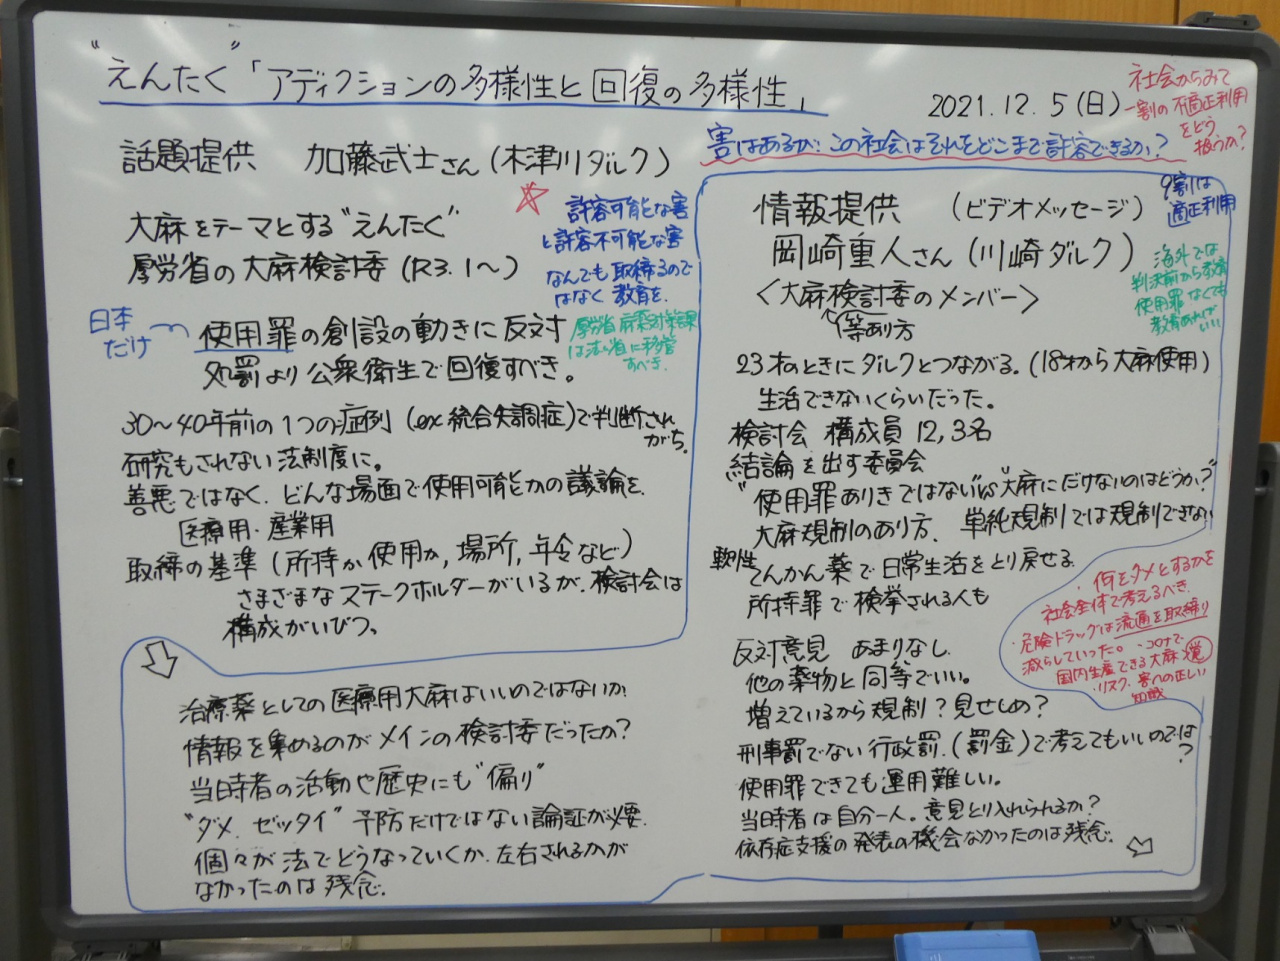 “えんたく”「アディクションの多様性と回復の多様性」
2021.12.5(日)
社会からみて
一割の不適正利用
をどう
扱うか?
害はあるが、この社会はそれをどこまで許容できるか?
話題提供 加藤武士さん(木津川ダルク)
大麻をテーマとする“えんたく”
厚労省の大麻検討委(R3.1〜)
日本
だけ
使用罪の創設の動きに反対
処罰より公衆衛生で回復すべき。
許容可能な害
と許容不可能な害
なんでも取締るので
はなく教育を.
厚労省麻薬対策課
は法ム省に移管
すべき.
30〜40年前の1つの症例(ex統合失調症)で判断され
がち。
研究もされない法制度に。
善悪ではなく、どんな場面で使用可能かの議論を.
医療用・産業用
取締の基準(所持か使用か,場所,年令など)
さまざまなステークホルダーがいるが、検討会は
構成がいびつ。
治療薬としての医療用大麻はいいのではないか?
情報を集めるのがメインの検討委だったか?
当时者の活動や歴史にも“偏り”
“ダメ.ゼッタイ”予防だけではない論証が必要.
個々が法でどうなっていくか.左右されるかが
なかったのは残念.
9割は
適正利用
情報提供 (ビデオメッセージ)
岡崎重人さん(川崎ダルク)
<大麻検討委のメンバー>
等あり方
海外では
判決前から教育
使用罪なくても
教育あれば
いい
23才のときにダルクとつながる。(18才から大麻使用)
生活できないくらいだった。
検討会 構成員12,3名
結論を出す委員会
“使用罪ありきではない”vs“大麻にだけないのはどうか?”
大麻規制のあり方、単純規制では規制できない
難性
てんかん薬で日常生活をとり戻せる.
所持罪で検挙される人も
・何をダメとするかを
社会全体で考えるべき.
・危険ドラッグは流通を取締り
減らしていった。・コロナで
国内生産できる大麻増
・リスク、害への正しい
知識
反対意見 あまりなし.
他の薬物と同等でいい。
増えているから規制?見せしめ?
刑事罰でない行政罰.(罰金)で考えてもいいのでは
?
使用罪できても運用難しい。
当时者は自分一人。意見とり入れられるか?
依存症支援の発表の機会なかったのは残念.